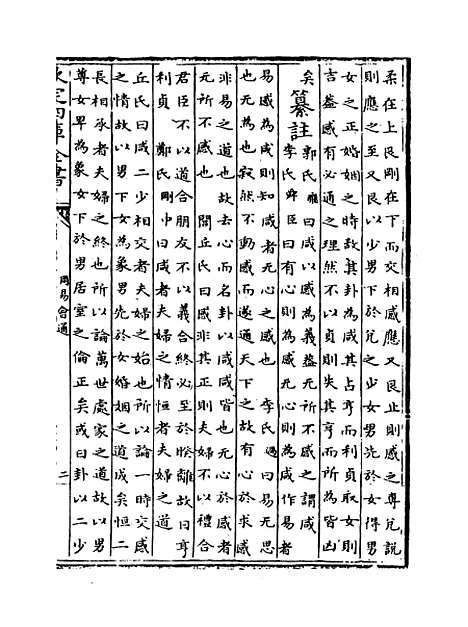 柔在上艮剛在下而交相感應又艮止則感之專兊說
則應之至又艮以少男下於兊之少女男先於女得男
女之正婚姻之時故其卦為咸其占亨而利貞取女則
吉葢感有必通之理然不以貞則失其亨而所為皆凶
矣
纂註
郭氏雍曰咸以感為義葢无所不感之謂咸
李氏舜臣曰有心則為感无心則為咸作易者
易感為咸則知咸者无心之感也 李氏過曰易无思
也无為也寂然不動感而遂通天下之故有心於求感
非易之道也故去心而名卦以咸咸皆也无心於感者
无所不感也 閭丘氏曰感非其正則夫婦不以禮合
君臣不以道合朋友不以義合終必至於暌離故曰亨
利貞 鄭氏剛中曰咸者夫婦之情恒者夫婦之道
丘氏曰咸二少相交者夫婦之始也所以論一時交感
之情故以男下女為象男先於女婚姻之道成矣恒二
長相承者夫婦之終也所以論萬世處家之道故以男
尊女卑為象女下於男居室之倫正矣或曰卦以二少
欽定四庫全書
周易會通
二